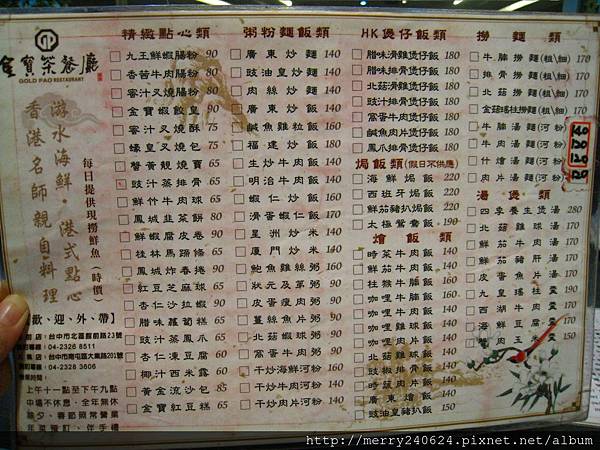 金寶茶餐廳
GOLD PAO RESTAURANT
游水海鮮•港式點心
香港名師親自料理
每日提供現撈鮮魚(時價)
歡、迎、外、帶】
店：台中市北區館前路23號
04-2326 8511
店：台中市南屯區大業路201號
04-2328 3606
上午十一點至下午九點
中場不休息．全年無休
除夕、春節照常營業
年菜預訂、伴手禮
精緻點心類
九王鮮蝦腸粉 90
香茜牛肉腸粉 80
蜜汁叉燒腸粉 80
金寶蝦餃皇 90
蜜汁叉燒酥 75
蠔皇叉燒包 75
蟹黃靚燒賣 65
豉汁蒸排骨 65
鮮竹牛肉球 65
鳳城韭菜餅 80
鮮蝦腐皮卷 90
桂林馬蹄條 65
鳳城炸春捲 90
紅豆芝麻球 65
杏仁沙拉蝦 90
腊味蘿蔔糕 65
豉汁蒸鳳爪 65
杏仁凍豆腐 60
椰汁西米露 60
黃金流沙包 85
金寶紅豆糕 65
粥粉麵飯類
廣東炒麵 140
豉油皇炒麵 140
肉絲炒麵 140
廣東炒飯 140
鹹魚雞粒飯 160
福建炒飯 160
生炒牛肉飯 140
明治牛肉飯 140
蝦仁炒飯 170
滑蛋蝦仁飯 170
星洲炒米 140
廈門炒米 140
鮑魚雞絲粥 160
狀元及第粥 160
皮蛋瘦肉粥 160
薑絲魚片粥 160
窩蛋牛肉粥 160
干炒海鮮河粉 160
干炒牛肉河粉 140
干炒肉片河粉 140
HK煲仔飯類
腊味滑雞煲仔飯 180
腊味排骨煲仔飯 180
北菇滑雞煲仔飯 180
豉汁排骨煲仔飯 180
窩蛋牛肉煲仔飯 180
鹹魚肉片煲仔飯 180
鳳爪排骨煲仔飯 180
焗飯類(假日不供應)
海鮮焗飯 220
西班牙焗飯 220
鮮茄豬扒焗飯 220
太極鴛鴦飯 190
燴飯類
時菜牛肉飯 140
鮮茄牛肉飯 140
柱猴牛腩飯 160
咖哩牛腩飯 160
咖哩牛肉飯 160
咖哩雞球飯 160
北菇雞球飯 160
豉椒排骨飯 160
時蔬肉片飯 160
廣東燴飯 160
豉油皇豬扒飯 150
撈麵類
牛腩撈麵(粗\細) 170
排骨撈麵(粗\細) 170
北菇撈麵(粗\細) 170
金菇瑤柱撈麵(粗\細) 170
牛腩湯麵(河粉)
牛肉湯麵(河粉)
什燴湯麵(河粉)
肉片湯麵(河粉)
湯煲類
四季養生煲湯 280
北菇雞球湯 170
鮮茄牛肉湯 170
鮮茄豬肝湯 170
皮蛋魚片湯 170
九皇瑤柱羹 190
西湖牛肉羹 170
海鮮豆腐羹 170
150
http://merry240624.pixnet.net/album